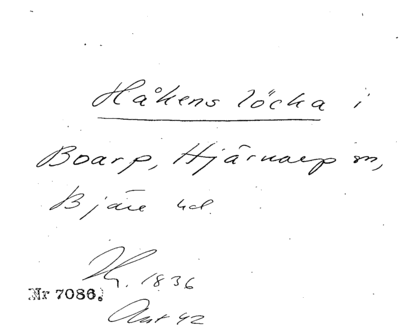 Håkens löcka i
Boarp, Hjärnarp sn,
Bjäre hd.
1836
Nr 7086.
Ant 42